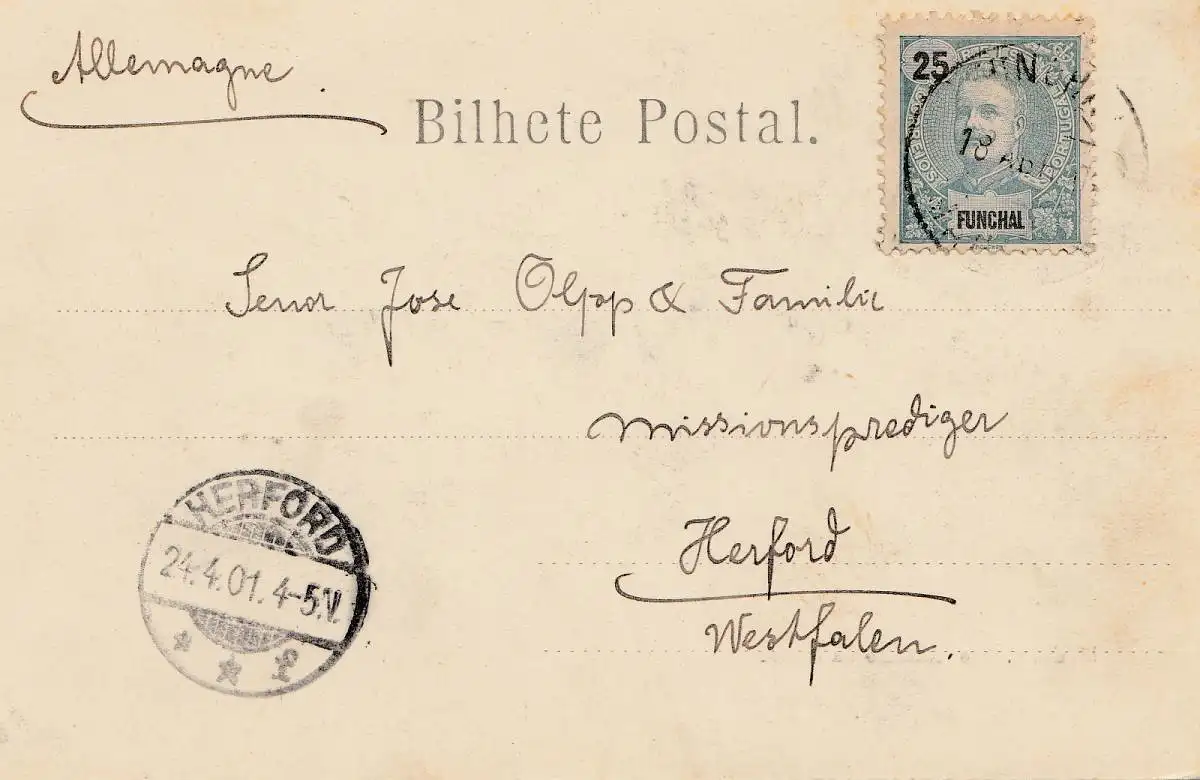 Allemagne
Bilhete Postal.
25
CORREIOS
PORTUGAL
FUNCHAL
FUNCHAL
18 ABR
Senor Jose Olpp & Familie
Missionsprediger
Herford
Westfalen.
HERFORD
24.4.01. 4-5.V.
* * f